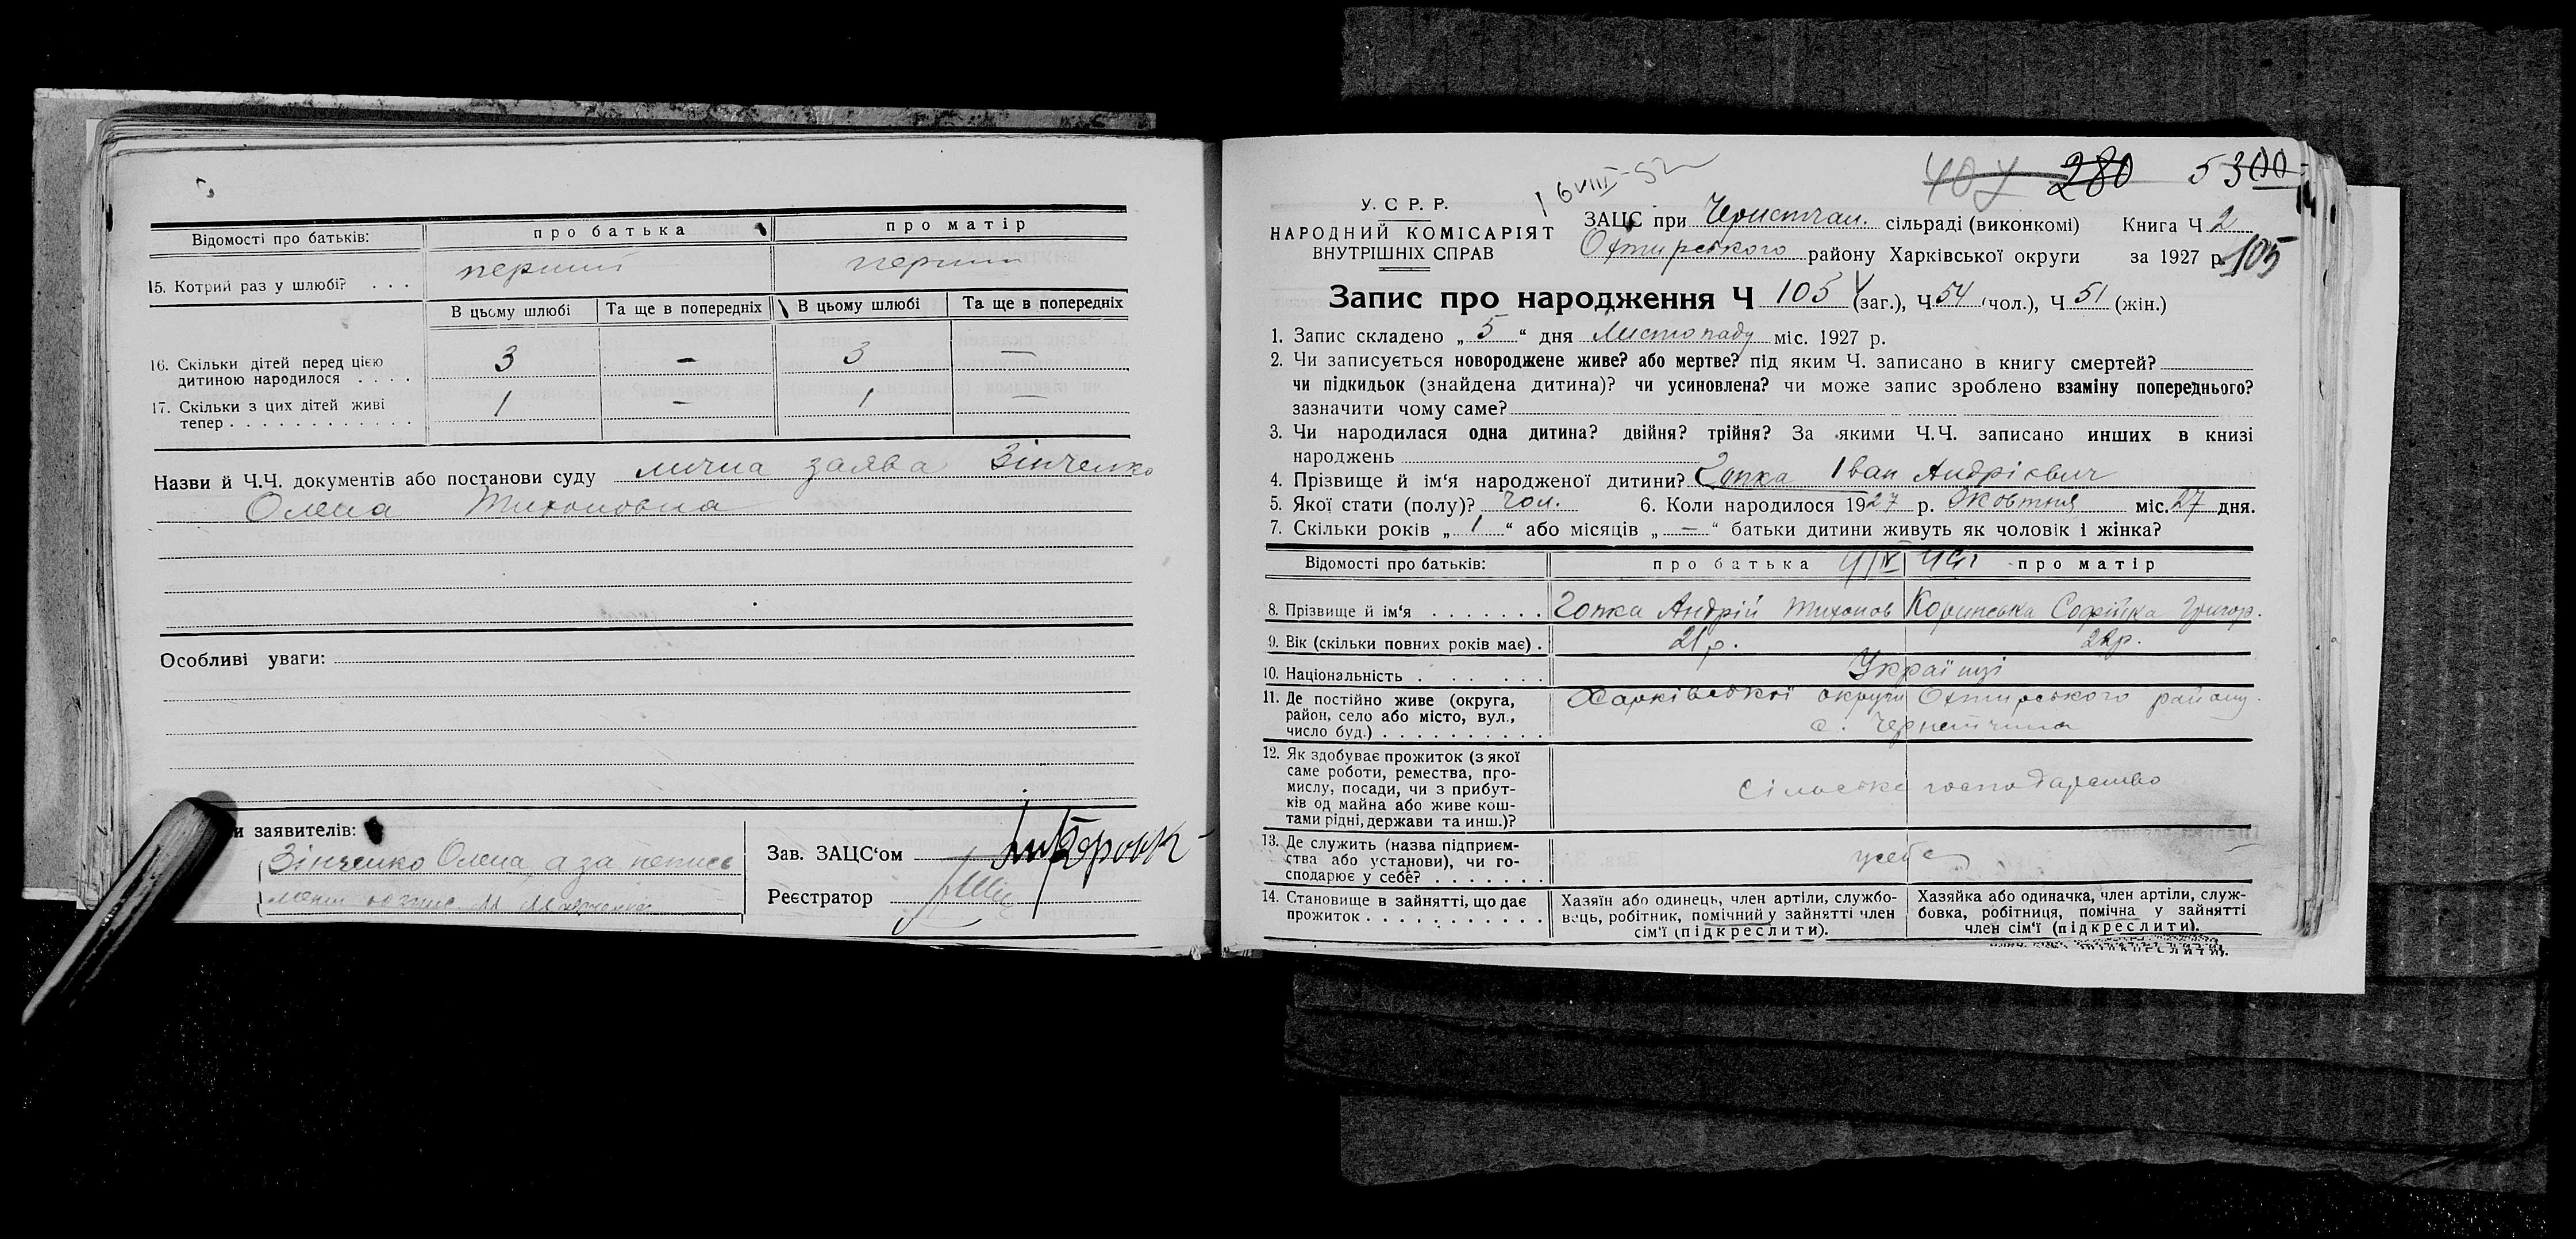 Відомості про батьків: про батька про матір
15. Котрий раз у шлюбі? . . . перший перший
В цьому шлюбі Та ще в попередніх В цьому шлюбі Та ще в попередніх
16. Скільки дітей перед цією
дитиною народилося . . . . 3 - 3 -
17. Скільки з цих дітей живі
тепер . . . . . . . . . . . . . 1 - 1 -
Назви й Ч.Ч. документів або постанови суду лична заява Зінченко
Олена Тихоновна
Особливі уваги:
и заявителів:
Зінченко Олена, а за
Зав. ЗАЦС‘ом
Реєстратор
16 VIII-52
280 5300
У. С Р. Р.
НАРОДНИЙ КОМІСАРІЯТ
ВНУТРІШНІХ СПРАВ
ЗАЦС при сільраді (виконкомі) Книга Ч 2
Охтирського району Харківської округи за 1927 р. 105
Запис про народження Ч 105 (заг.), Ч 54 (чол.), Ч 51 (жін.)
1. Запис складено „ 5 “ дня Листопаду міс. 1927 р.
2. Чи записується новороджене живе? або мертве? під яким Ч. записано в книгу смертей?
чи підкидьок (знайдена дитина)? чи усиновлена? чи може запис зроблено взаміну попереднього?
зазначити чому саме?
3. Чи народилася одна дитина? двійня? трійня? За якими Ч.Ч. записано инших в книзі
народжень
4. Прізвище й ім‘я народженої дитини? Гопка Іван Андрієвич
5. Якої стати (полу)? чол. 6. Коли народилося 1927 р. Жовтня міс. 27 дня.
7. Скільки років „ 1 “ або місяців „ - “ батьки дитини живуть як чоловік і жінка?
Відомості про батьків: про батька про матір
8. Прізвище й ім‘я . . . . . . . Гопка Андрій Тихонов Софійка Григор.
9. Вік (скільки повних років має) . 21 р. 22 р.
10. Національність . . . . . . Українці
11. Де постійно живе (округа,
район, село або місто, вул.,
число буд.) . . . . . . . . . . Харківської округи Охтирського району
с. Чернетчина
12. Як здобуває прожиток (з якої
саме роботи, ремества, про-
мислу, посади, чи з прибут-
ків од майна або живе кош-
тами рідні, держави та инш.)? Сільське господарство
13. Де служить (назва підприєм-
ства або установи), чи го-
сподарює у себе? . . . . . . . у себе
14. Становище в зайнятті, що дає
прожиток . . . . . . . . . . .
Хазяїн або одинець, член артіли, службо-
вець, робітник, помічний у зайнятті член
сім‘ї (підкреслити).
Хазяйка або одиначка, член артіли, служ-
бовка, робітниця, помічна у зайнятті
член сім‘ї (підкреслити).